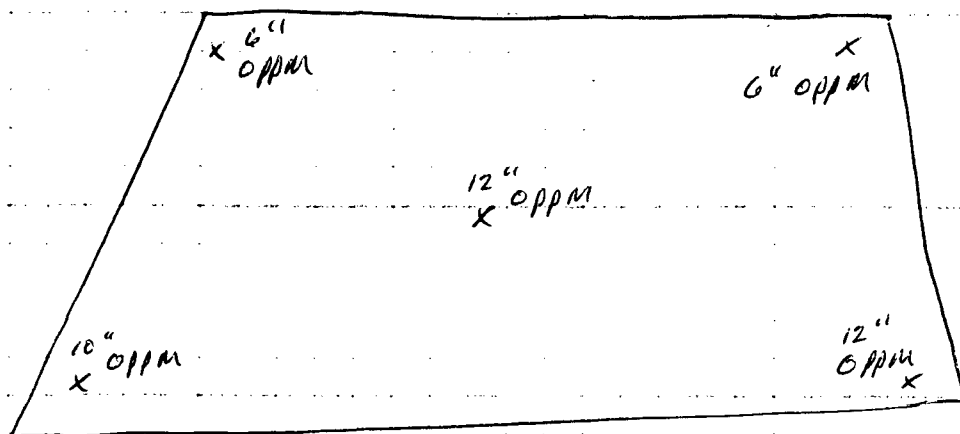 6"
0 ppm
x
x
6" 0 ppm
12" 0 ppm
x
10" 0 ppm
x
12"
0 ppm
x